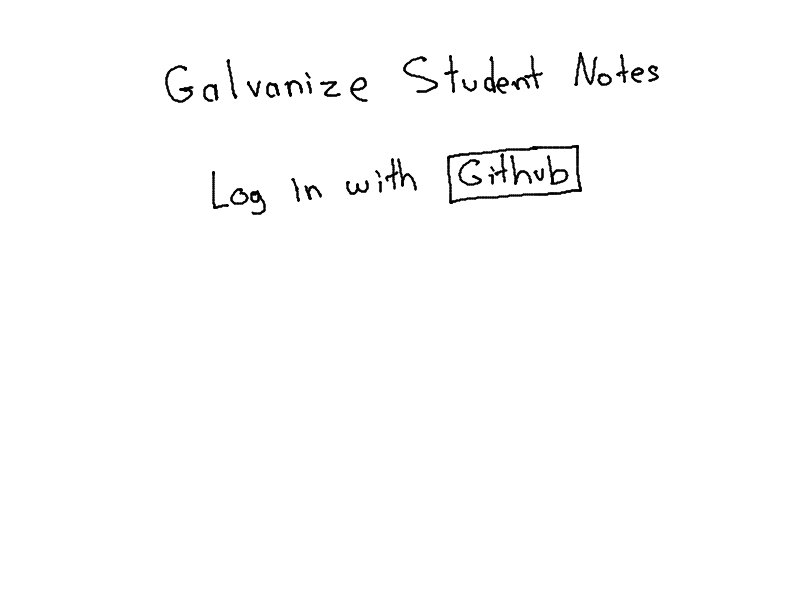 Galvanize Student Notes
Log In with Github